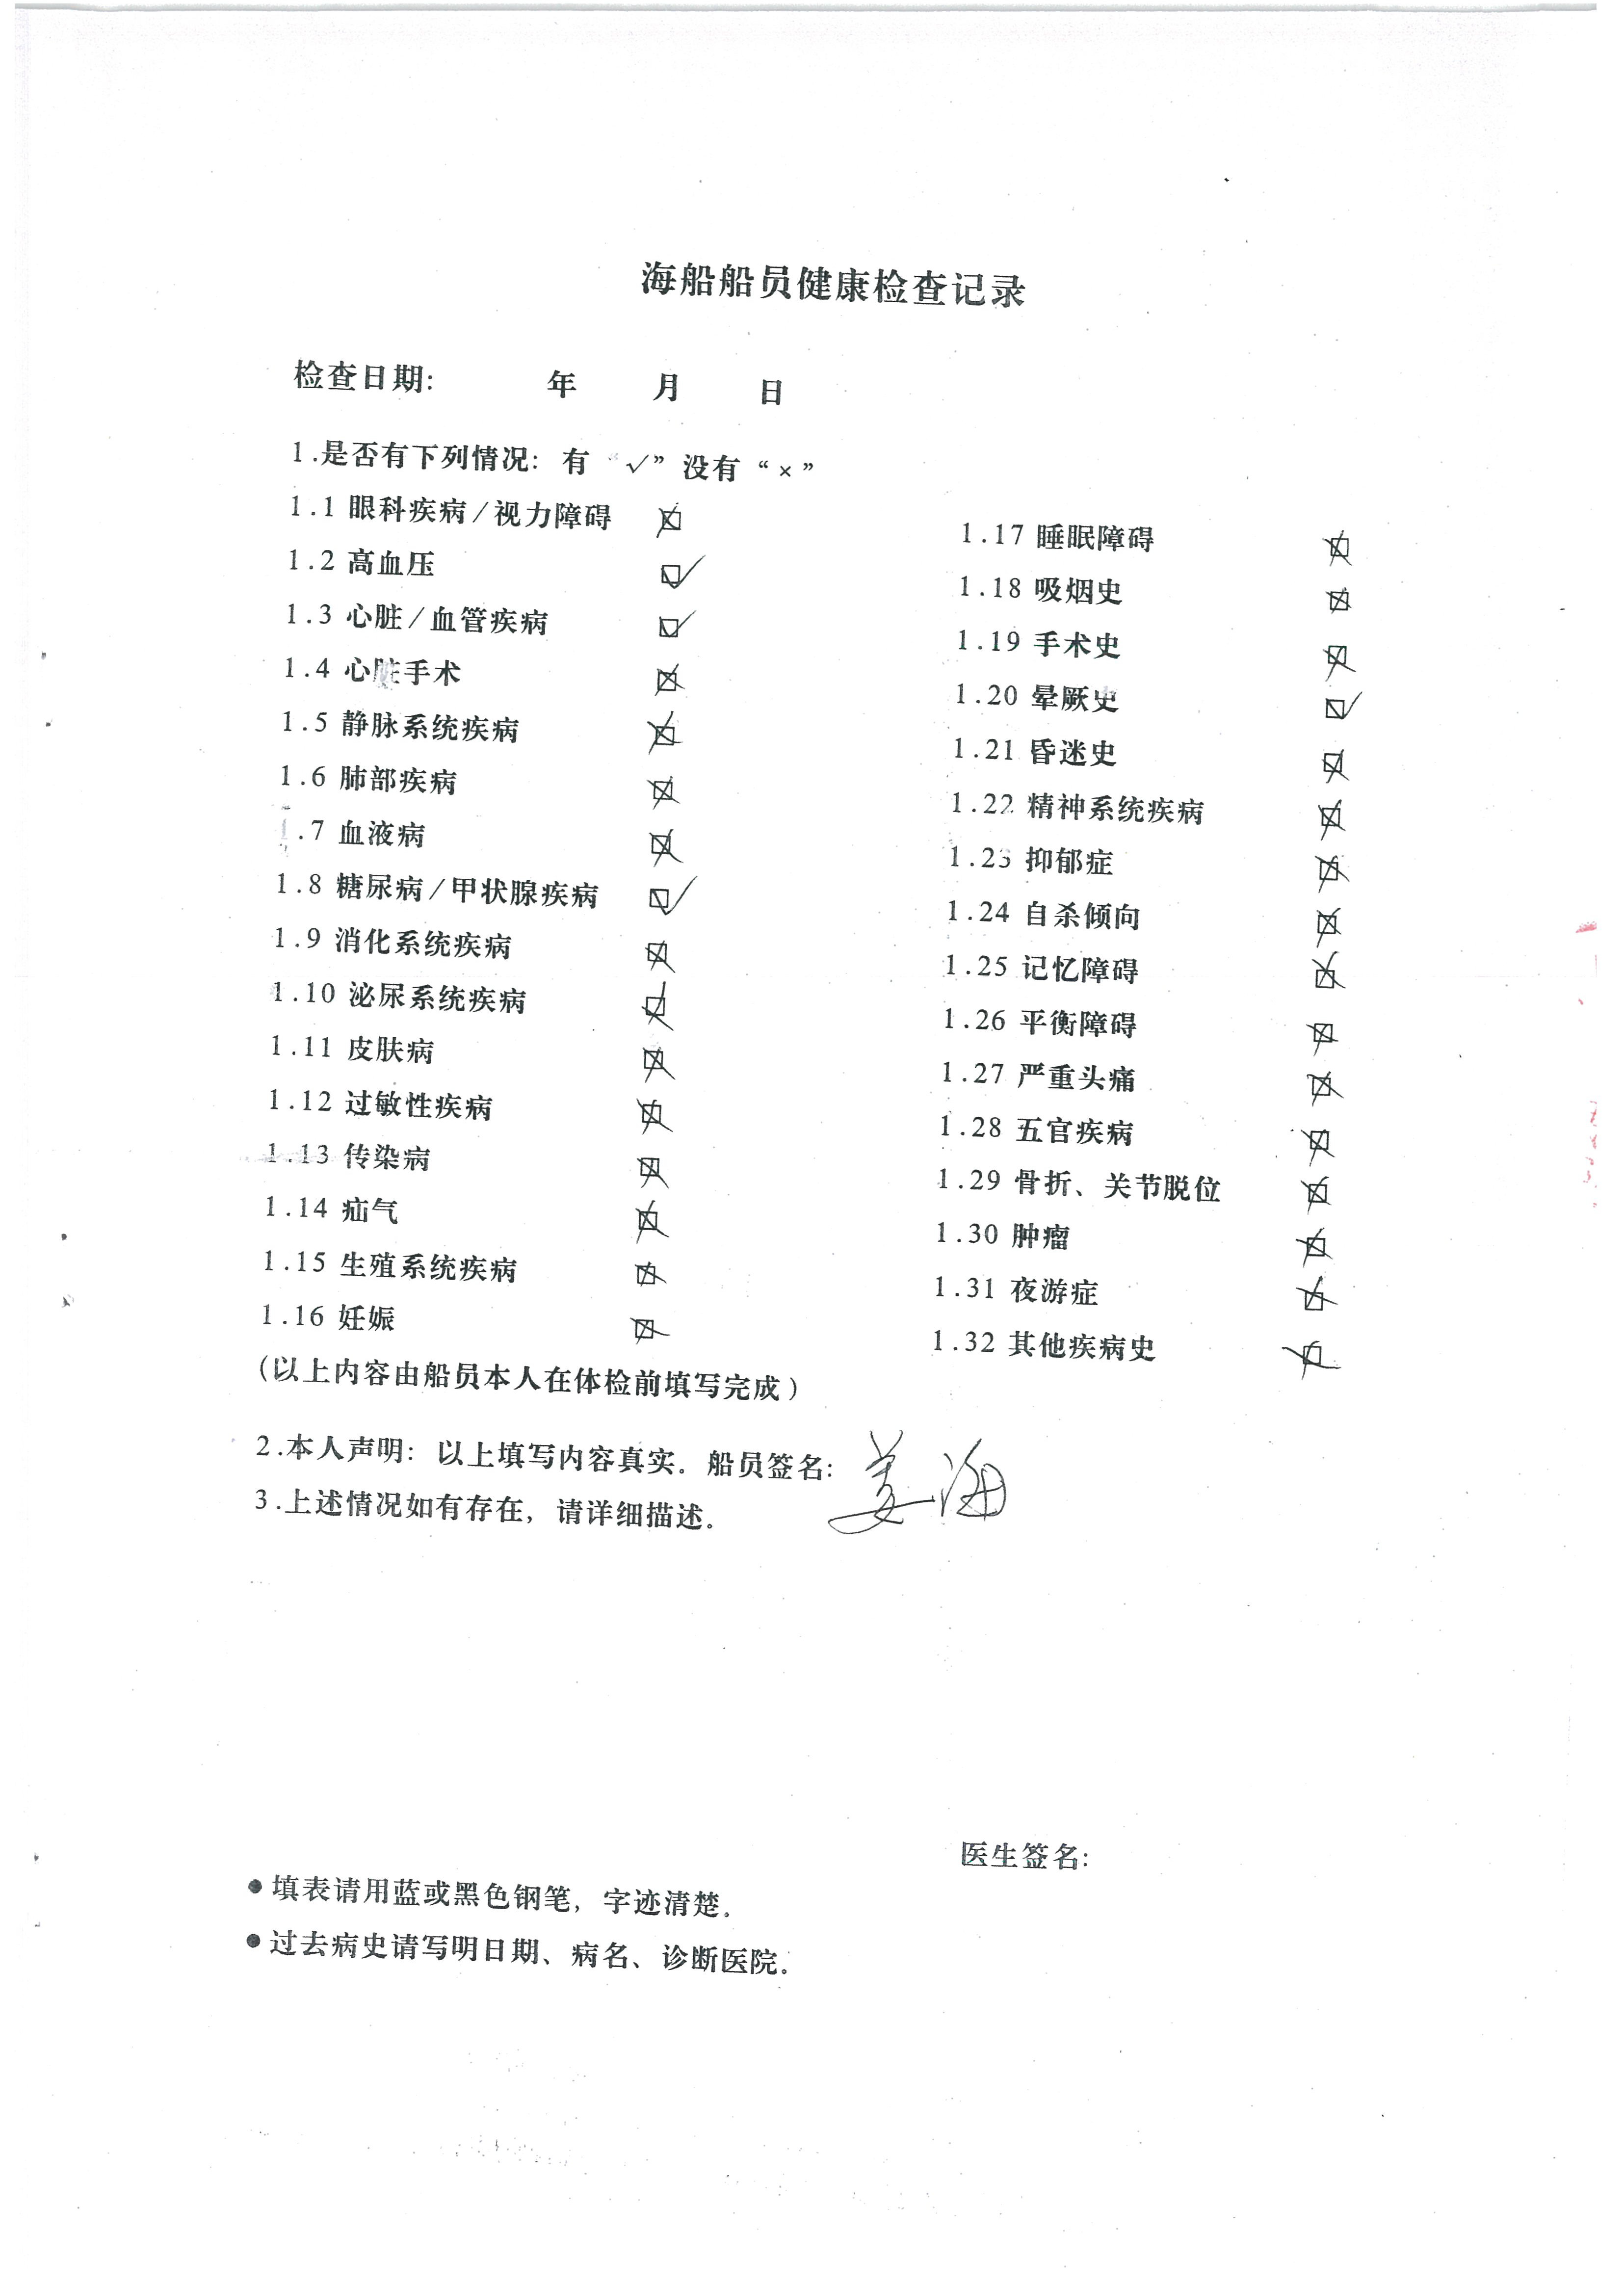 海船船员健康检查记录
检查日期: 年 月 日
1.是否有下列情况: 有“√”没有“×”
1.1 眼科疾病/视力障碍 ×
1.2 高血压 √
1.3 心脏/血管疾病 √
1.4 心脏手术 ×
1.5 静脉系统疾病 ×
1.6 肺部疾病 ×
1.7 血液病 ×
1.8 糖尿病/甲状腺疾病 √
1.9 消化系统疾病 ×
1.10 泌尿系统疾病 ×
1.11 皮肤病 ×
1.12 过敏性疾病 ×
1.13 传染病 ×
1.14 疝气 ×
1.15 生殖系统疾病 ×
1.16 妊娠 ×
1.17 睡眠障碍 ×
1.18 吸烟史 ×
1.19 手术史 ×
1.20 晕厥史 √
1.21 昏迷史 ×
1.22 精神系统疾病 ×
1.23 抑郁症 ×
1.24 自杀倾向 ×
1.25 记忆障碍 ×
1.26 平衡障碍 ×
1.27 严重头痛 ×
1.28 五官疾病 ×
1.29 骨折、关节脱位 ×
1.30 肿瘤 ×
1.31 夜游症 ×
1.32 其他疾病史 ×
(以上内容由船员本人在体检前填写完成)
2.本人声明: 以上填写内容真实. 船员签名: 姜海
3.上述情况如有存在, 请详细描述.
医生签名:
●填表请用蓝或黑色钢笔, 字迹清楚.
●过去病史请写明日期、病名、诊断医院.